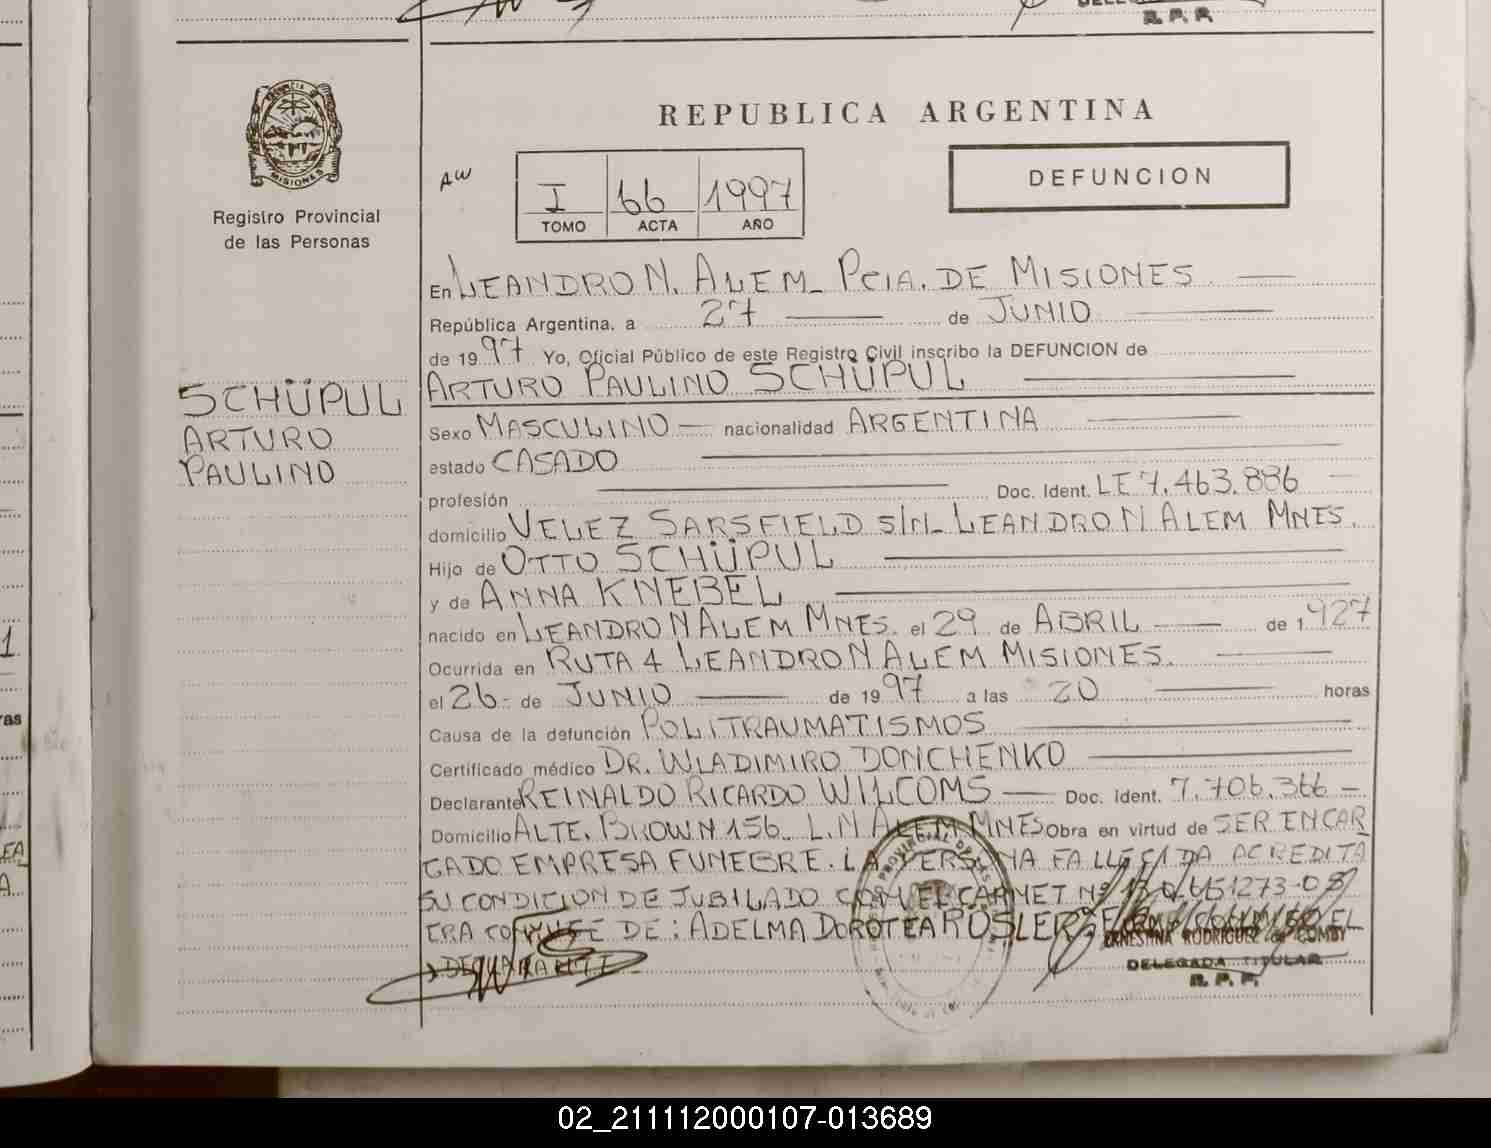 R. P. P.
MISIONES
Registro Provincial
de las Personas
REPUBLICA ARGENTINA
AW
I 66 1997
TOMO ACTA AÑO
DEFUNCION
En LEANDRO N. ALEM - PCIA. DE MISIONES
República Argentina, a 27 de JUNIO
de 1997 Yo, Oficial Público de este Registro Civil inscribo la DEFUNCION de
ARTURO PAULINO SCHÜPUL
SCHÜPUL
ARTURO
PAULINO
Sexo MASCULINO nacionalidad ARGENTINA
estado CASADO
profesión Doc. Ident. LE 7.463.886
domicilio VELEZ SARSFIELD S/N - LEANDRO N ALEM MNES.
Hijo de OTTO SCHÜPUL
y de ANNA KNEBEL
nacido en LEANDRO N ALEM MNES. el 29 de ABRIL de 1.927
Ocurrida en RUTA 4 LEANDRO N ALEM MISIONES.
el 26- de JUNIO de 1997 a las 20 horas
Causa de la defunción POLITRAUMATISMOS
Certificado médico DR. WLADIMIRO DONCHENKO
Declarante REINALDO RICARDO WILCOMS Doc. Ident. 7.706.366
Domicilio ALTE. BROWN 156 - L.N ALEM MNES Obra en virtud de SER ENCAR
GADO EMPRESA FUNEBRE. LA PERSONA FALLECIDA ACREDITA
SU CONDICION DE JUBILADO CON EL CARNET Nº
ERA CONYUGE DE: ADELMA DOROTEA RÖSLER EL
DECLARANTE
ERNESTINA RODRIGUEZ de GOMBY
DELEGADA TITULAR
R. P. P.
02_211112000107-013689